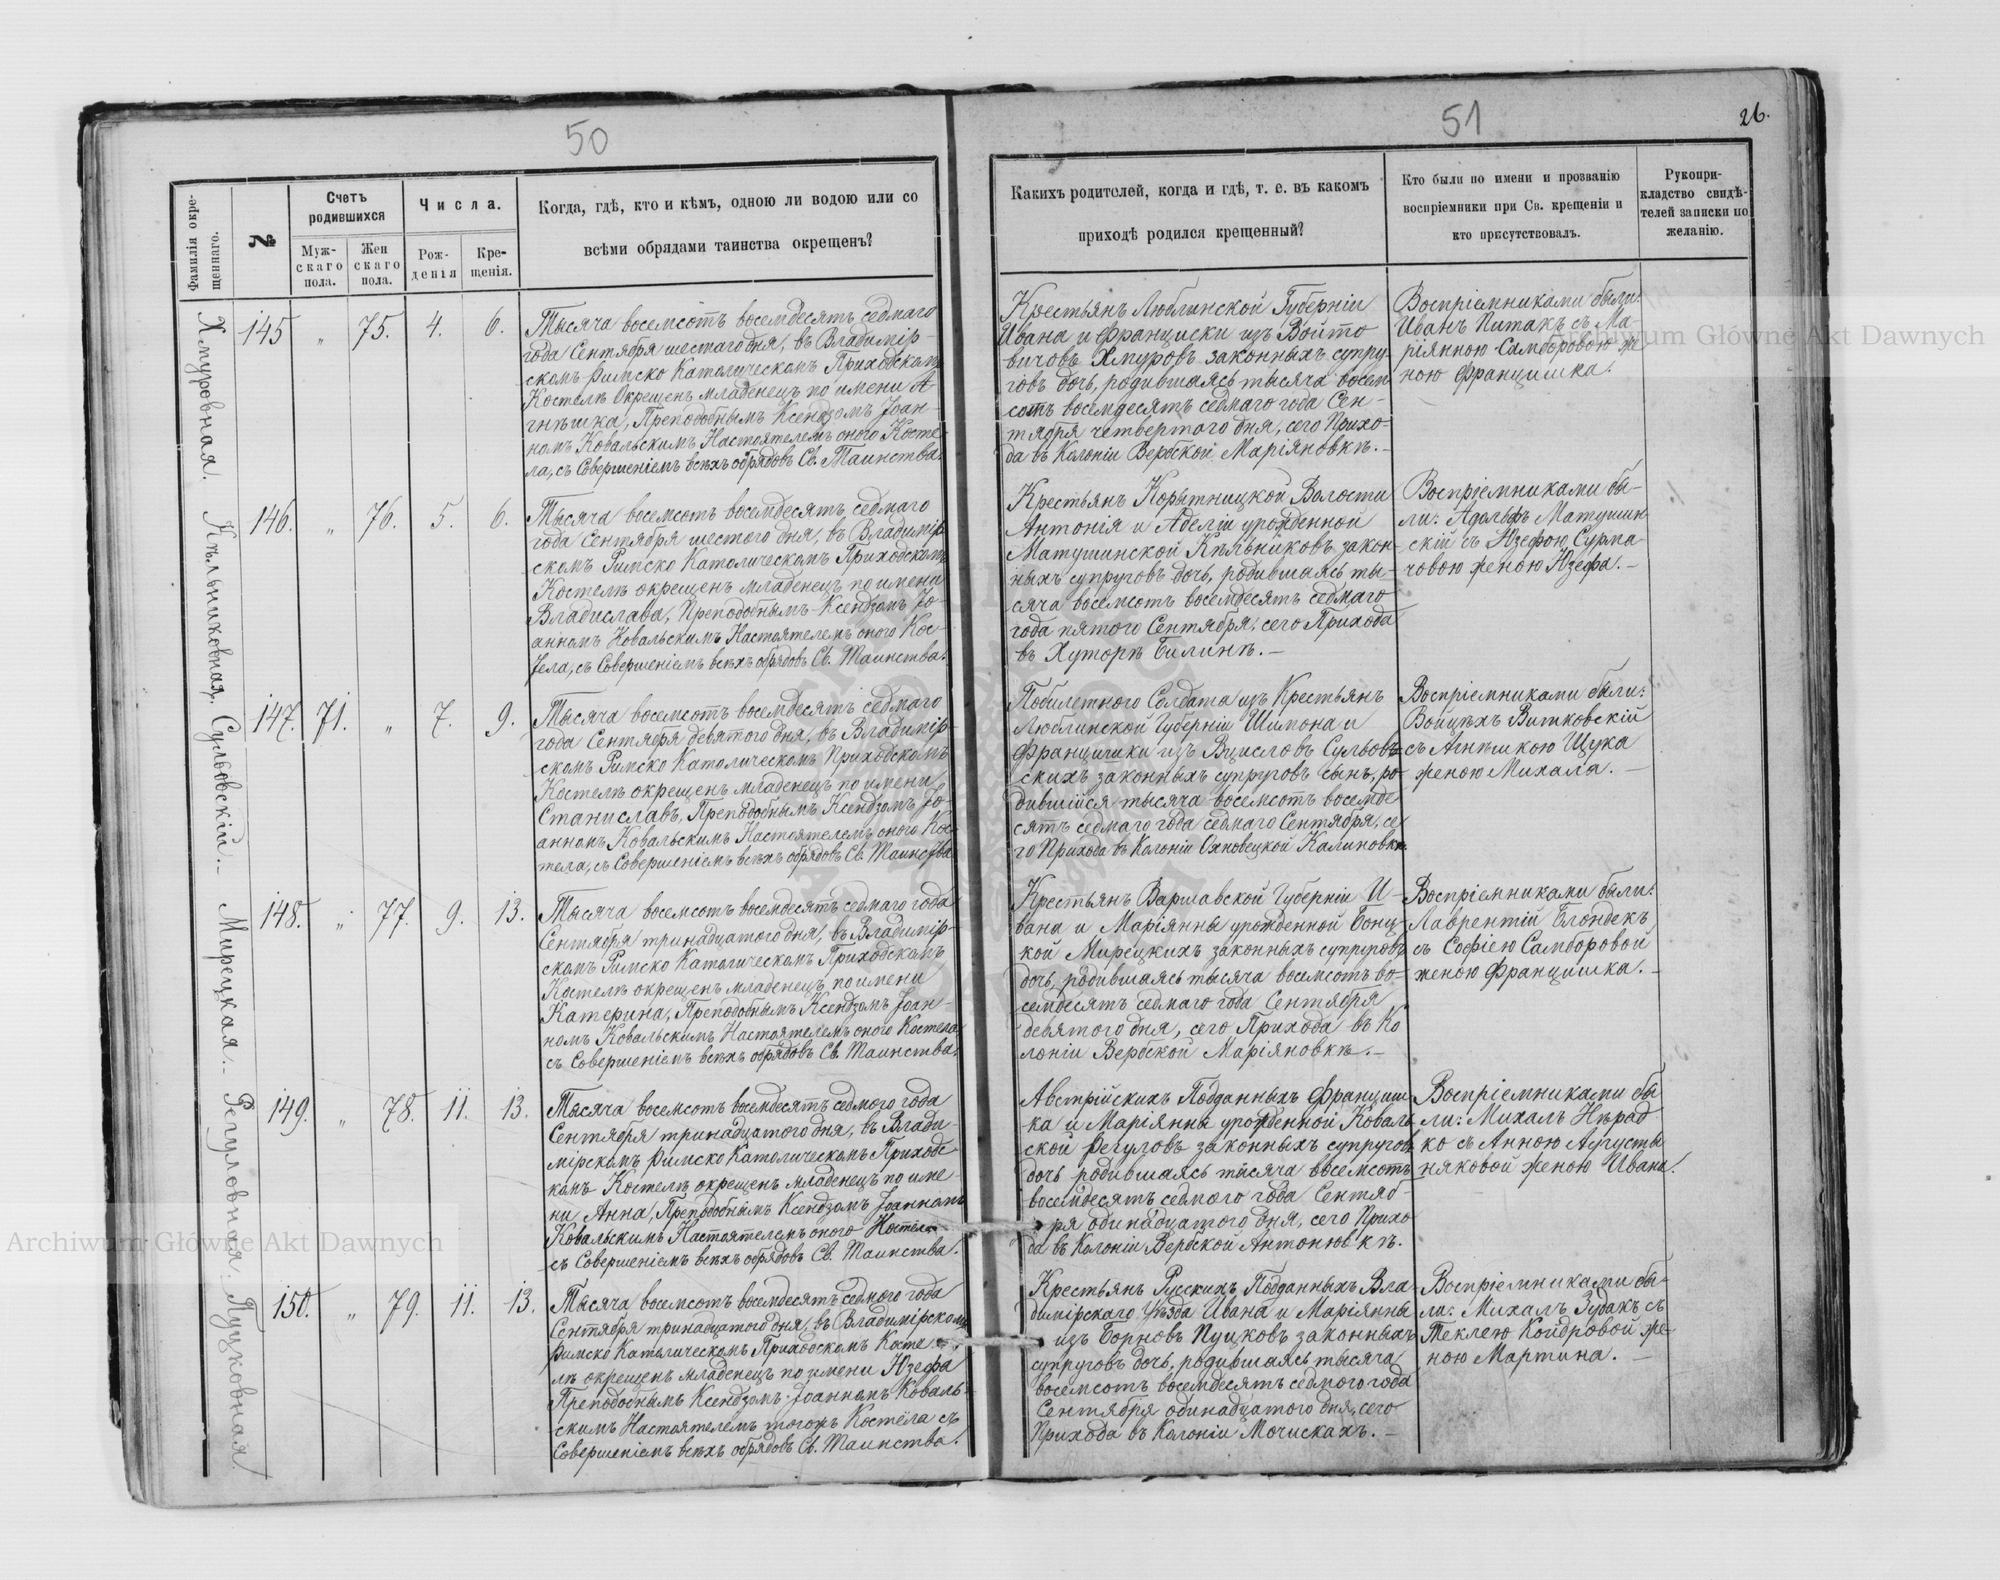 50
Фамилія окре-
щеннаго.
№
Счетъ
родившихся
Муж-
скаго
пола.
Жен
скаго
пола.
Числа.
Рож-
денія
Кре-
щенія.
Когда, гдѣ, кто и кѣмъ, одною ли водою или со
всѣми обрядами таинства окрещенъ?
Хмуровная.
145 " 75. 4. 6.
Тысяча восемсотъ восемдесятъ седмаго
года Сентября шестаго дня, въ Владимір-
скомъ Римско Католическомъ Приходскомъ
Костелѣ Окрещенъ младенецъ по имени А
гнѣшка, Преподобнымъ Ксендзомъ Іоан-
номъ Ковальскимъ Настоятелемъ оного Косте-
ла, съ Совершеніемъ всѣхъ обрядовъ Св. Таинства.
Кѣльниковная
146. " 76. 5. 6.
Тысяча восемсотъ восемдесятъ седмаго
года Сентября шестого дня, въ Владимір
скомъ Римско Католическомъ Приходскомъ
Костелѣ окрещенъ младенецъ по имени
Владислава, Преподобнымъ Ксендзомъ Іо-
анномъ Ковальскимъ Настоятелемъ оного Кос-
тела, съ Совершеніемъ всѣхъ обрядовъ Св. Таинства.
Сульвовскій.
147. 71. " 7. 9.
Тысяча восемсотъ восемдесятъ седмаго
года Сентября девятого дня, въ Владимір-
скомъ Римско Католическомъ Приходскомъ
Костелѣ окрещенъ младенецъ по имени
Станиславъ, Преподобнымъ Ксендзомъ Іо-
анномъ Ковальскимъ Настоятелемъ оного Кос-
тела, съ Совершеніемъ всѣхъ обрядовъ Св. Таинства
Мирецкая.
148. " 77. 9. 13.
Тысяча восемсотъ восемдесятъ седмаго года
Сентября тринадцатого дня, въ Владимір-
скомъ Римско Католическомъ Приходскомъ
Костелѣ окрещенъ младенецъ по имени
Катерина, Преподобнымъ Ксендзомъ Іоан-
номъ Ковальскимъ Настоятелемъ оного Костела
съ Совершеніемъ всѣхъ обрядовъ Св. Таинства.
Регуловная.
149. " 78. 11. 13.
Тысяча восемсотъ восемдесятъ седмого года
Сентября тринадцатого дня, въ Влади-
мірскомъ Римско Католическомъ Приходс-
комъ Костелѣ окрещенъ младенецъ по име-
ни Анна, Преподобнымъ Ксендзомъ Іоанномъ
Ковальскимъ Настоятелемъ оного Костела
съ Совершеніемъ всѣхъ обрядовъ Св. Таинства.
Пуцковная.
150. " 79. 11. 13.
Тысяча восемсотъ восемдесятъ седмого года
Сентября тринадцатого дня, въ Владимірскомъ
Римско Католическомъ Приходскомъ Косте-
лѣ окрещенъ младенецъ по имени Юзефа
Преподобнымъ Ксендзомъ Іоанномъ Коваль-
скимъ Настоятелемъ тогожъ Костёла съ
Совершеніемъ всѣхъ обрядовъ Св. Таинства.
51
26.
Какихъ родителей, когда и гдѣ, т. е. въ какомъ
приходѣ родился крещенный?
Кто были по имени и прозванію
воспріемники при Св. крещеніи и
кто присутствовалъ.
Рукопри-
кладство свидѣ-
телей записки по
желанію.
Крестьянъ Люблинской Губерніи
Ивана и Франциски изъ Войто
вичовъ Хмуровъ законныхъ супру-
говъ дочь, родившаясь тысяча восем
сотъ восемдесятъ седмаго года Сен-
тября четвертого дня, сего Прихо-
да въ Колоніи Вербской Маріяновкѣ.-
Воспріемниками были:
Иванъ Питакъ съ Ма-
ріянною Самборовою же
ною Францишка.
Крестьянъ Корытницкой Волости
Антонія и Аделіи урожденной
Матушинской Кѣльниковъ закон-
ныхъ супруговъ дочь, родившаясь ты-
сяча восемсотъ восемдесятъ седмаго
года пятого Сентября, сего Прихода
въ Хуторѣ Билинѣ.-
Воспріемниками бы-
ли: Адольфъ Матушин
скій съ Юзефою Сурма-
човою женою Юзефа.-
Побилетного Солдата изъ Крестьянъ
Люблинской Губерніи Шимона и
Францишки изъ Вцисловъ Сульвов-
скихъ законныхъ супруговъ сынъ, ро-
дившійся тысяча восемсотъ восемде
сятъ седмаго года седмаго Сентября, се
го Прихода въ Колоніи Охновецкой Калиновкѣ
Воспріемниками были:
Войцѣхъ Витковскій
съ Агнѣшкою Щука
женою Михала.-
Крестьянъ Варшавской Губерніи И-
вана и Маріянны урожденной Бонц-
кой Мирецкихъ законныхъ супруговъ
дочь, родившаясь тысяча восемсотъ во-
семдесятъ седмаго года Сентября
девятого дня, сего Прихода въ Ко
лоніи Вербской Маріяновкѣ.-
Воспріемниками были:
Лаврентій Блондекъ
съ Софіею Самборовой
женою Францишка.-
Австрійскихъ Подданныхъ Францишка
ка и Маріянны урожденной Коваль
ской Регуловъ законныхъ супруговъ
дочь родившаясь тысяча восемсотъ
восемдесятъ седмого года Сентяб-
ря одинадцатого дня, сего Прихо
да въ Колоніи Вербской Антонювкѣ.
Воспріемниками бы
ли: Михалъ Нѣрад
ко съ Анною Аугусты
няковой женою Ивана.
Крестьянъ Русскихъ Подданныхъ Вла
димірскаго Уѣзда Ивана и Маріянны
изъ Борновъ Пуцковъ законныхъ
супруговъ дочь, родившаясь тысяча
восемсотъ восемдесятъ седмого года
Сентября одинадцатого дня, сего
Прихода въ Колоніи Мочискахъ.-
Воспріемниками бы-
ли: Михалъ Зудакъ съ
Теклею Койдровой же-
ною Мартина.-
Archiwum Główne Akt Dawnych
Archiwum Główne Akt Dawnych